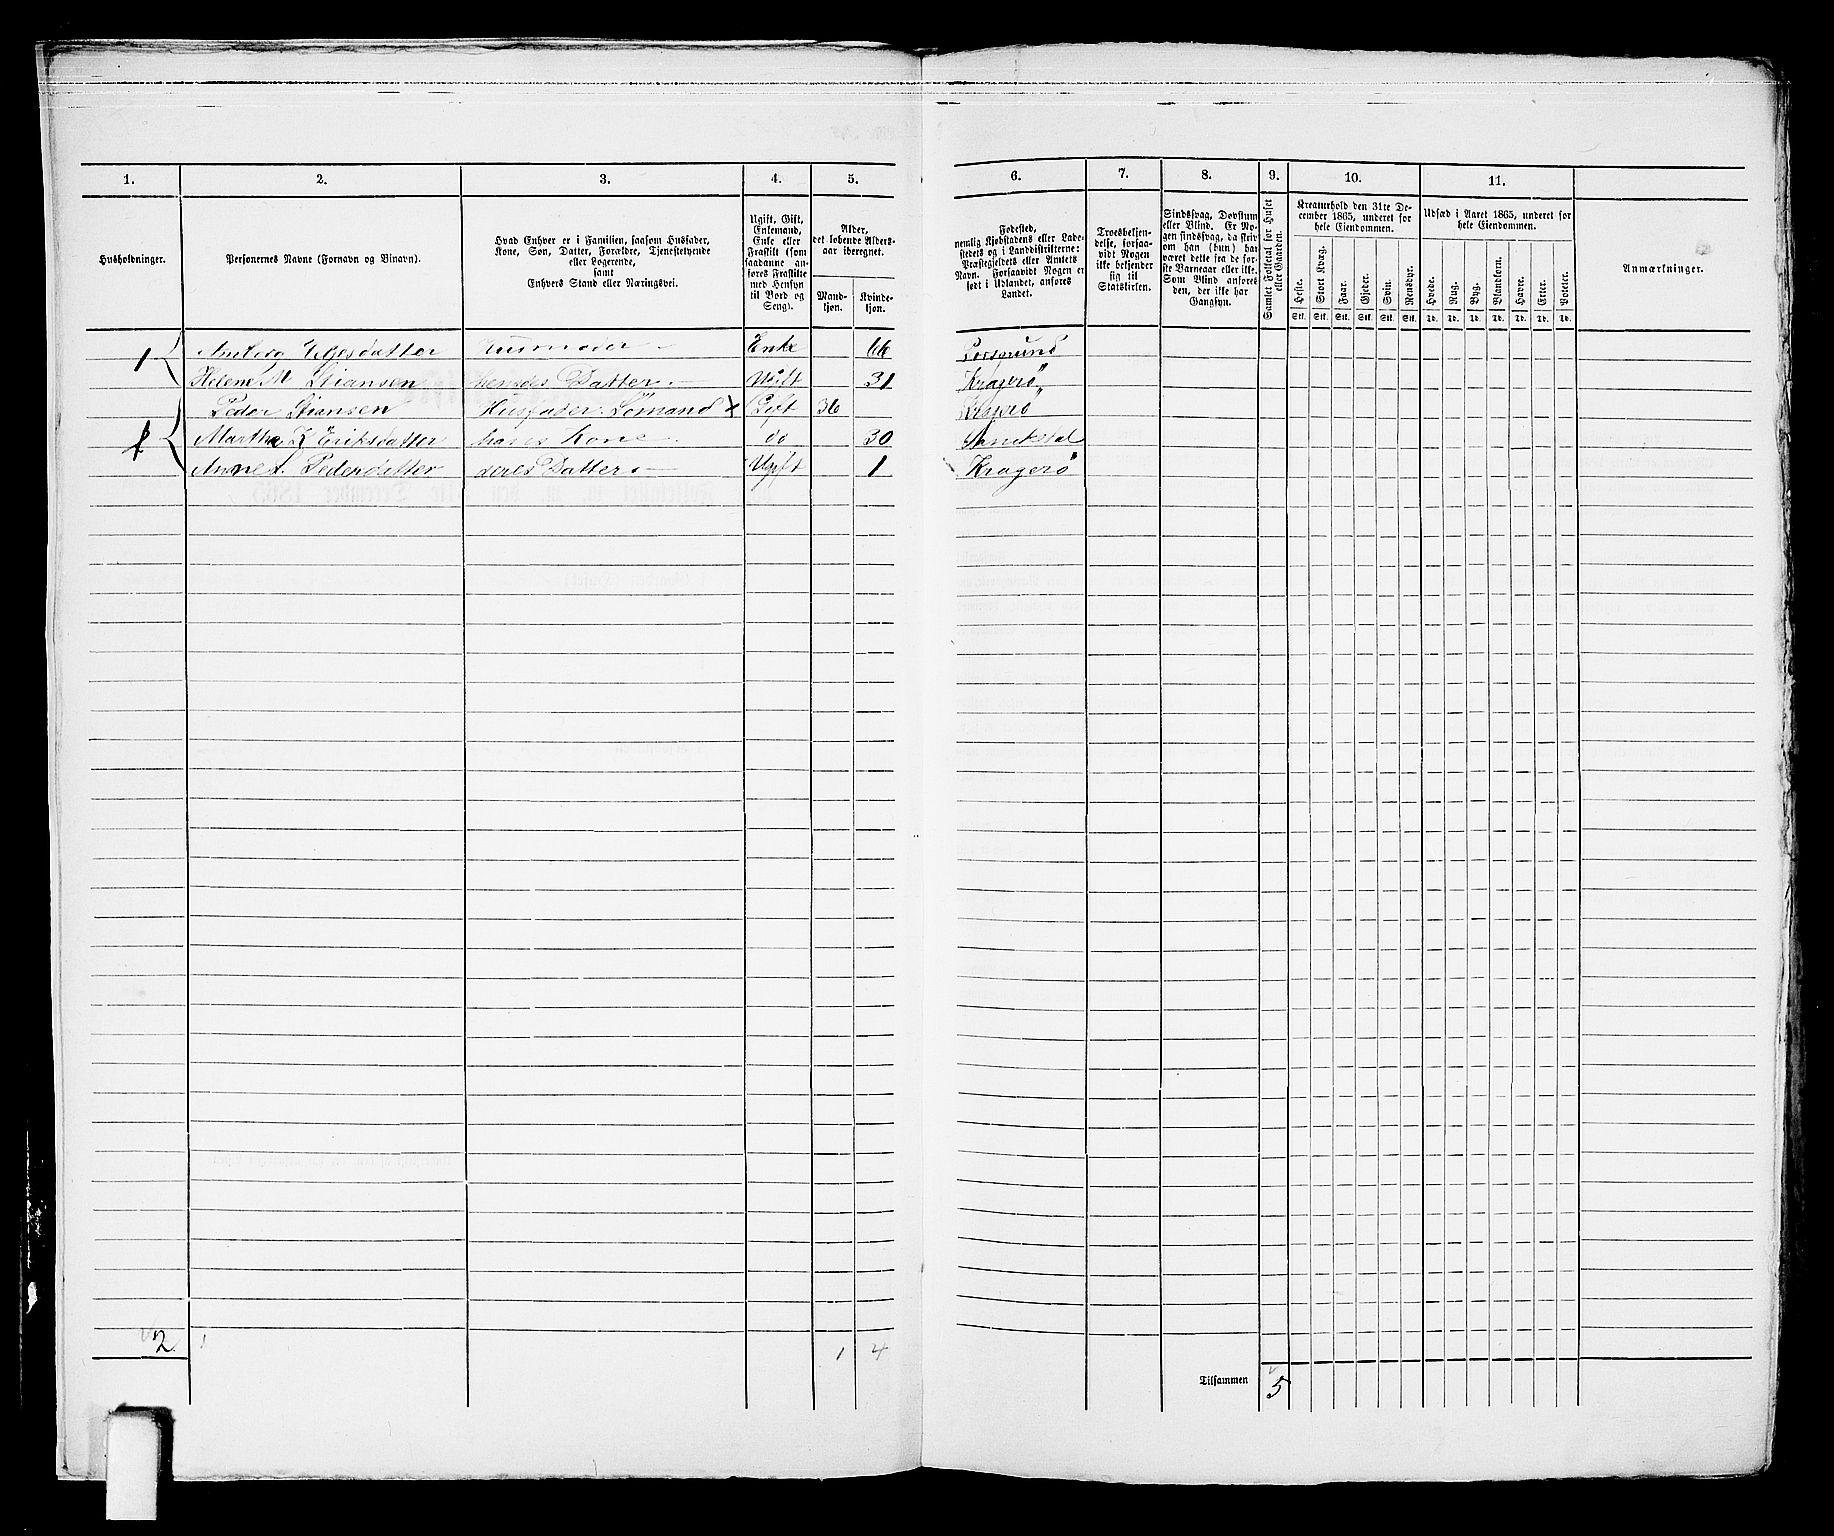 1. 2. 3. 4. 5. 6. 7. 8. 9. 10. 11.
Husholdninger.
Personernes Navne (Fornavn og Binavn).
Hvad Enhver er i Familien, saasom Husfader,
Kone, Søn, Datter, Forældre, Tjenestetyende
eller Logerende,
samt
Enhvers Stand eller Næringsvei.
Ugift, Gift,
Enkemand,
Enke eller
Fraskilt (som
saadanne an-
føres Fraskilte
med Hensyn
til Bord og
Seng).
Alder,
det løbende Alders-
aar iberegnet.
Mand-
kjøn.
Kvinde-
kjøn.
Fødested,
nemlig Kjøbstadens eller Lade-
stedets og i Landdistrikterne:
Præstegjeldets eller Amtets
Navn. Forsaavidt Nogen er
født i Udlandet, anføres
Landet.
Troesbekjen-
delse, forsaa-
vidt Nogen
ikke bekjender
sig til
Statskirken.
Sindssvag, Døvstum
eller Blind. Er No-
gen sindssvag, da skriv
om han (hun) har
været dette fra de før-
ste Barneaar eller ikke.
Som Blind anføres
den, der ikke har
Gangsyn.
Samlet Folketal for Huset
eller Gaarden.
Kreaturhold den 31te De-
cember 1865, underet for
hele Eiendommen.
Heste. Stort Kvæg. Faar. Gjeder. Svin. Rensdyr.
Stk. Stk. Stk. Stk. Stk. Stk.
Udsæd i Aaret 1865, underet for
hele Eiendommen.
Hvede. Rug. Byg. Blandkorn. Havre. Erter. Poteter.
Td. Td. Td. Td. Td. Td. Td.
Anmærkninger.
1 Husmoder Enke 66 Porsgrund
Helene M Stiansen hendes Datter Ugift 31 Kragerö
Peder Stiansen Husfader. Sömand x Gift 36 Kragerö
1 Marthe K Eriksdatter hans Kone do 30 Sanikedal
Anne Pedersdatter deres Datter Ugift 1 Kragerö
2 1 1 4
Tilsammen 5